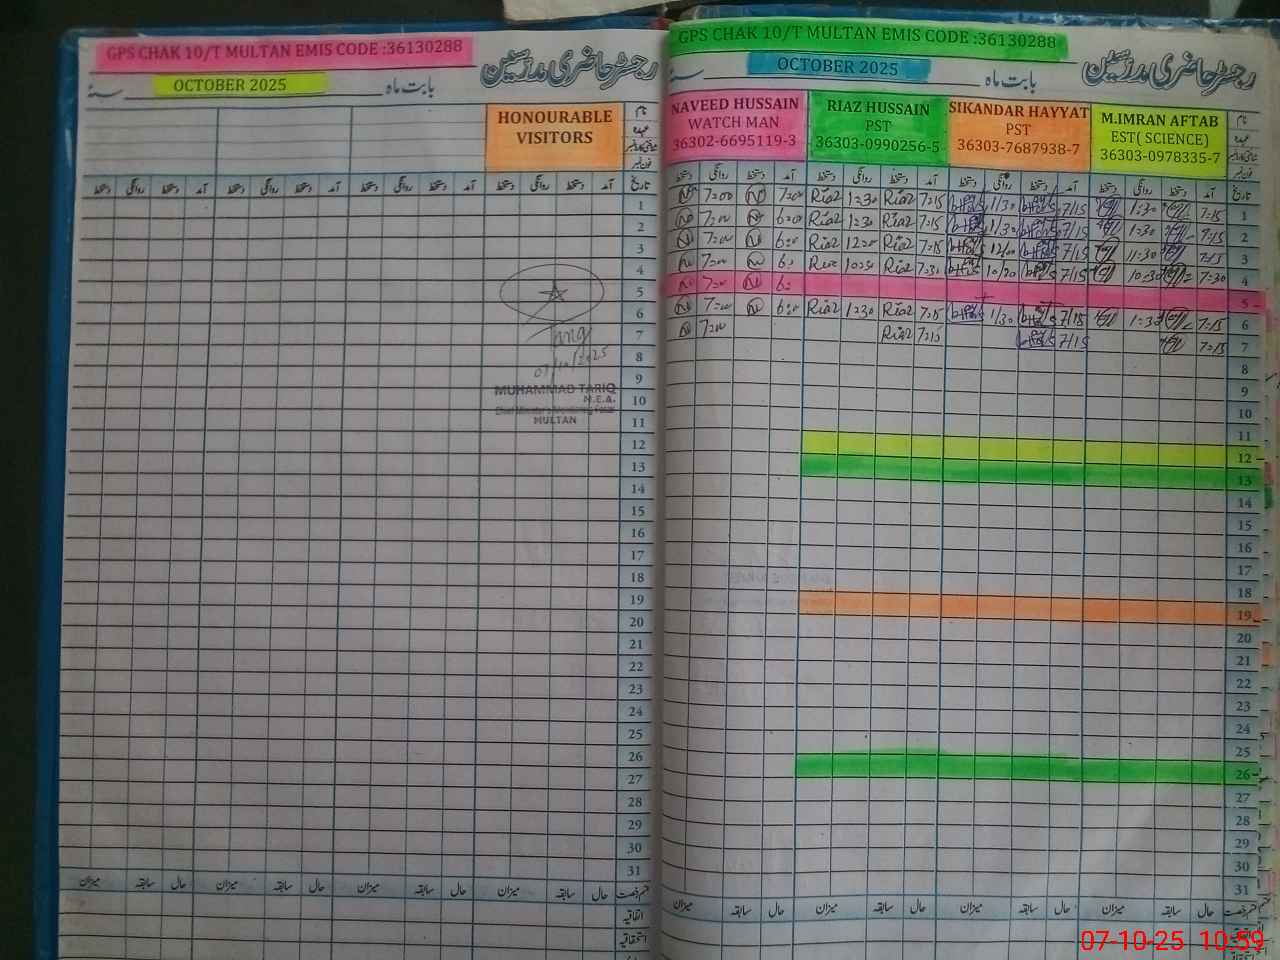 GPS CHAK 10/T MULTAN EMIS CODE :36130288
رجسٹر حاضری مدرسین
OCTOBER 2025
بابت ماہ
سنہ
HONOURABLE
VISITORS
نام
عہدہ
فون نمبر
تاریخ
آمد دستخط روانگی دستخط آمد دستخط روانگی دستخط آمد دستخط روانگی دستخط آمد دستخط روانگی دستخط
1
2
3
4
5
6
7
8
9
10
11
12
13
14
15
16
17
18
19
20
21
22
23
24
25
26
27
28
29
30
31
Tariq
07/10/2025
MUHAMMAD TARIQ
M.E.A.
MULTAN
حال سابقہ میزان حال سابقہ میزان حال سابقہ میزان حال سابقہ میزان
اتفاقیہ
استحقاقیہ
GPS CHAK 10/T MULTAN EMIS CODE :36130288
رجسٹر حاضری مدرسین
OCTOBER 2025
بابت ماہ
سنہ
NAVEED HUSSAIN
WATCH MAN
36302-6695119-3
RIAZ HUSSAIN
PST
36303-0990256-5
SIKANDAR HAYYAT
PST
36303-7687938-7
M.IMRAN AFTAB
EST( SCIENCE)
36303-0978335-7
نام
عہدہ
فون نمبر
تاریخ
آمد دستخط روانگی دستخط آمد دستخط روانگی دستخط آمد دستخط روانگی دستخط آمد دستخط روانگی دستخط
N 7=00 N 7=00 Riaz 1=30 Riaz 7=15 1/30 7/15 1=30 7=15 1
N 7=00 N 6=00 Riaz 1=30 Riaz 7=15 1/30 7/15 1=30 7=15 2
N 7=00 N 6=00 Riaz 12=00 Riaz 7=15 12/00 7/15 11=30 7=15 3
N 7=00 N 6= Riaz 10=30 Riaz 7=30 10/30 7/15 10=30 7=30 4
N 7=00 N 6= 5
N 7=00 N 6=00 Riaz 1=30 Riaz 7=15 1/30 7/15 1=30 7=15 6
N 7=00 Riaz 7=15 7/15 7=15 7
8
9
10
11
12
13
14
15
16
17
18
19
20
21
22
23
24
25
26
27
28
29
30
31
حال سابقہ میزان حال سابقہ میزان حال سابقہ میزان حال سابقہ میزان
اتفاقیہ
استحقاقیہ
07-10-25 10:59